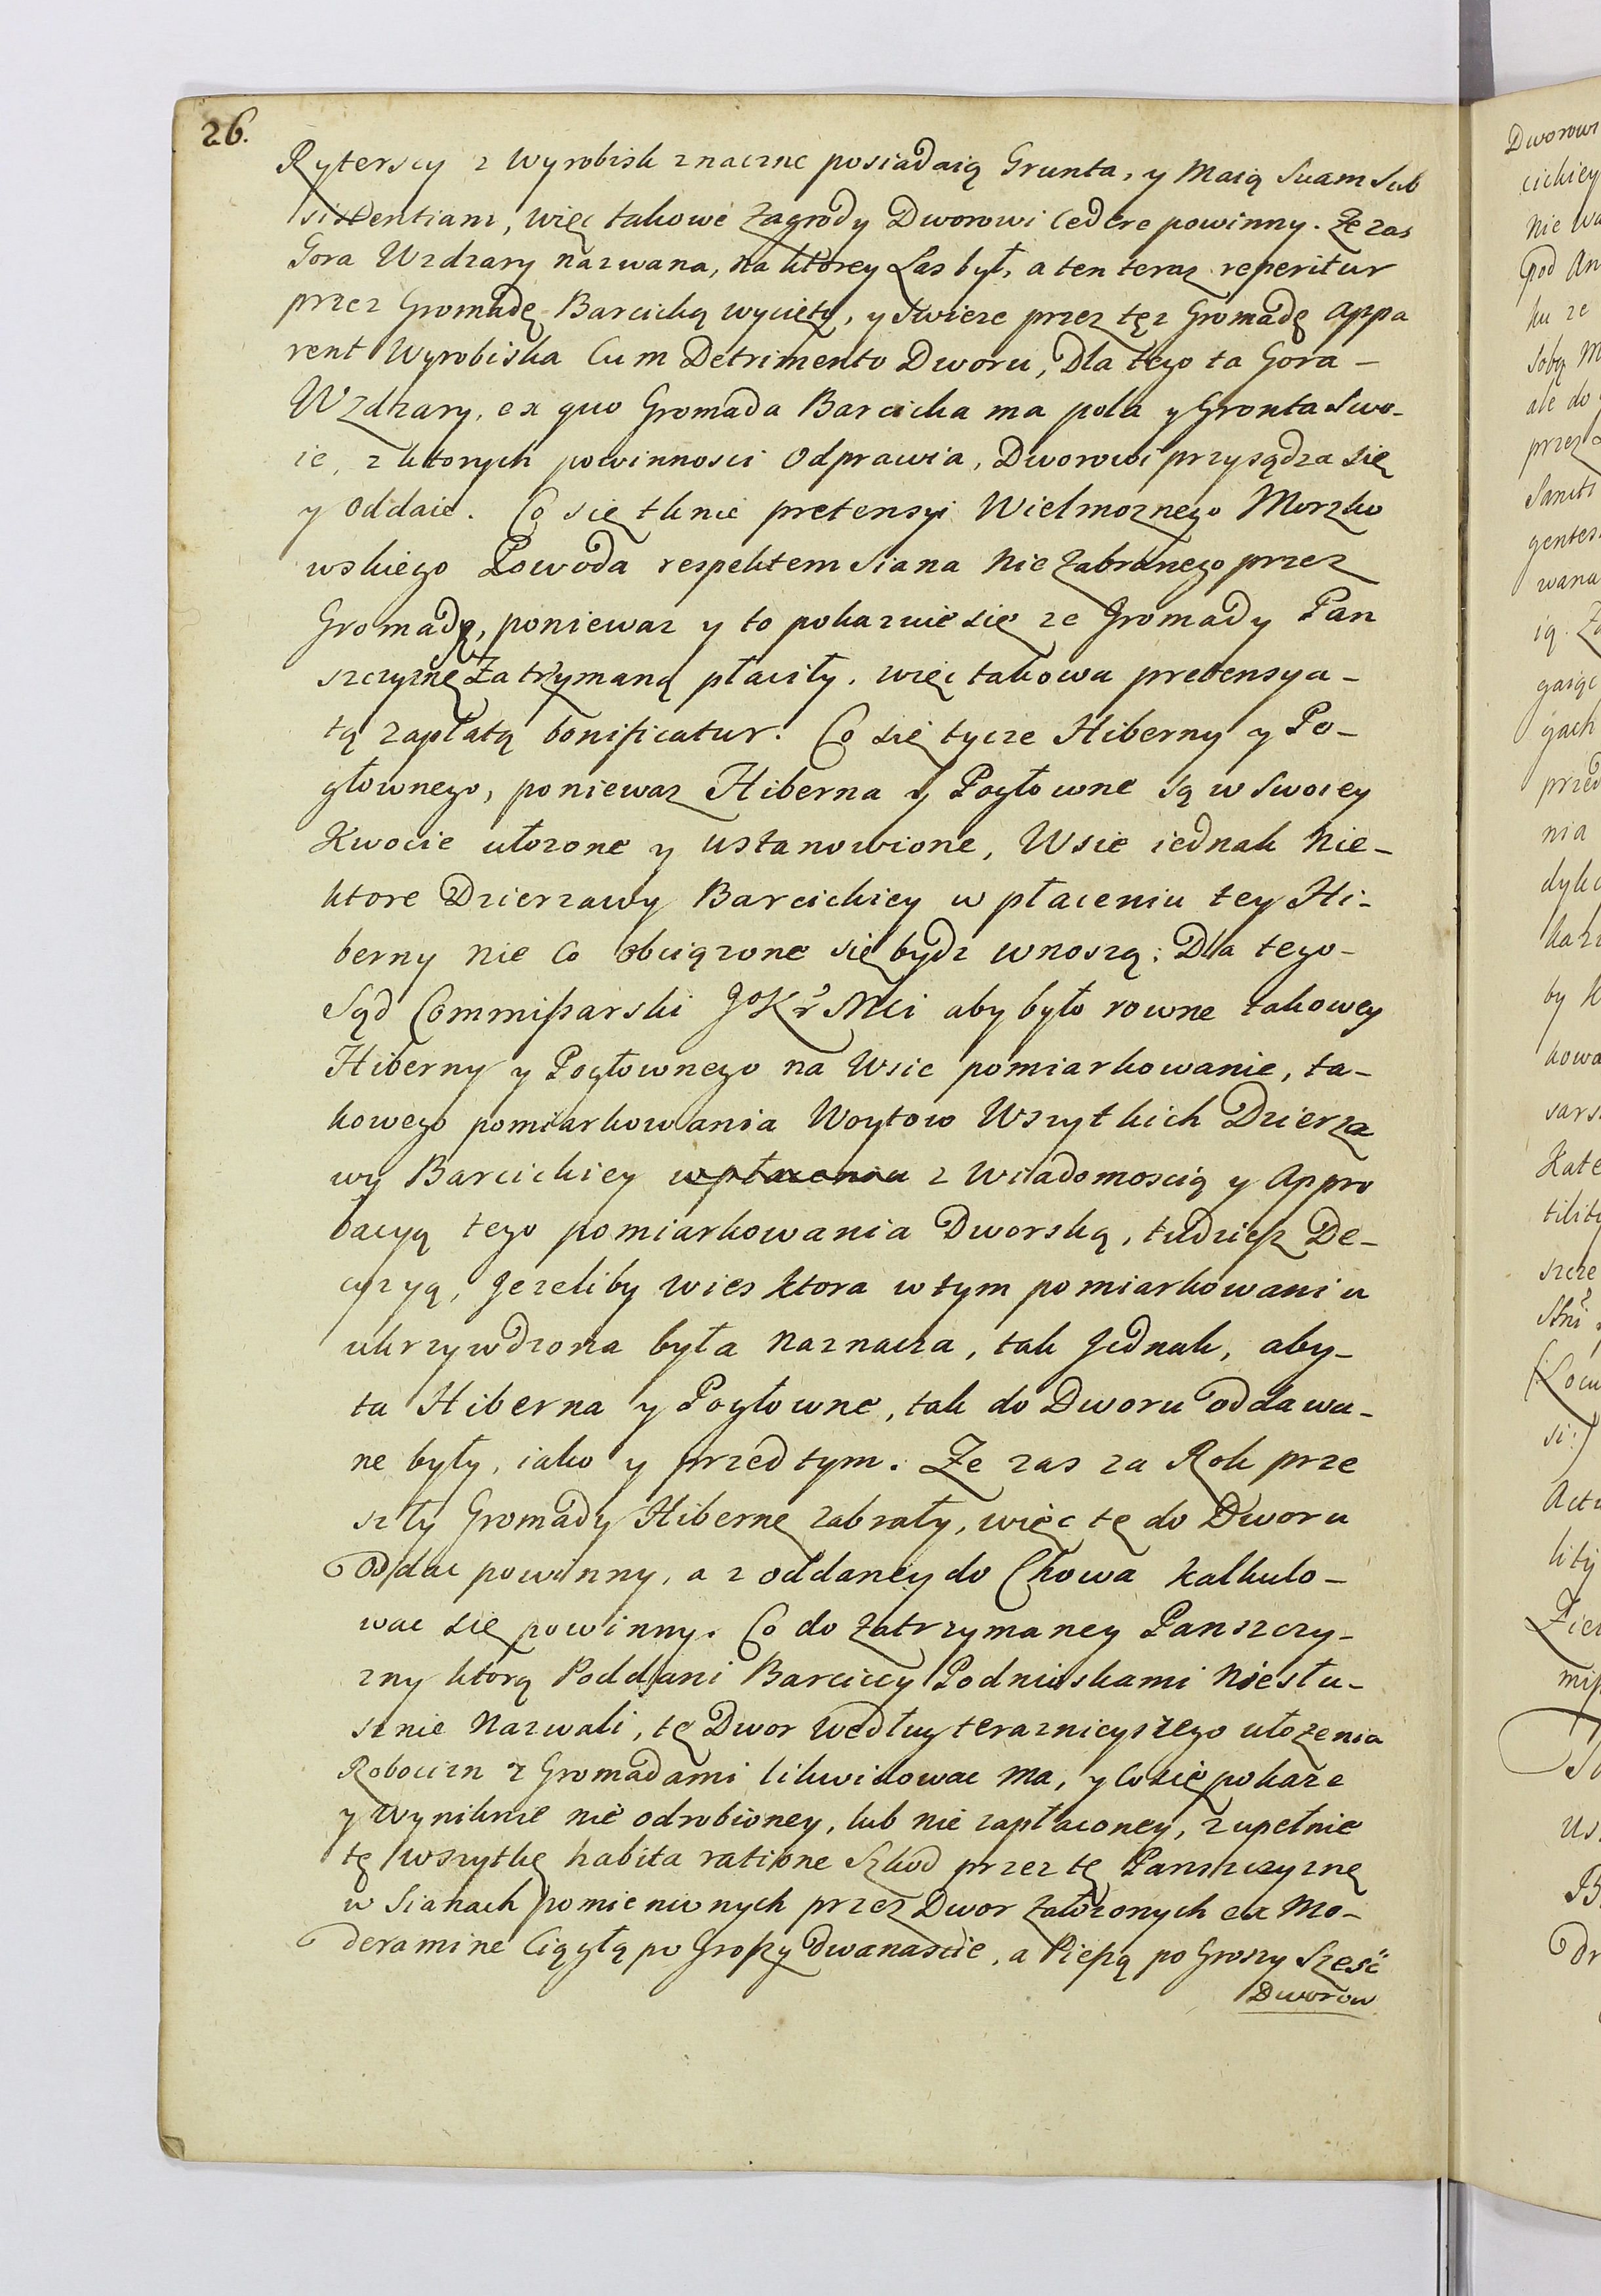 26.
Ryterscy z Wyrobisk znaczne posiadaią Grunta, y Maią Suam Sub
sistentiam, więc takowe Zagrody Dworowi Cedere powinny. Ze zas
Gora Wzdzary nazwana, na ktorey Las był, a ten teraz reperitur
przez Gromadę Barcicką wycięty, y swieze przez tęz Gromadę appa
rent Wyrobiska Cum Detrimento Dworu, Dla tego ta Gora –
Wzdzary, ex quo Gromada Barcicka ma pola y Gronta Swo-
ie, z ktorych powinnosci Odprawia, Dworowi przysądza się
y Oddaie. Co się tknie pretensyi Wielmoznego Morzko
wskiego Powoda respektem Siana nie zabranego przez
Gromadę, poniewaz y to pokazuie się ze Gromady Pan
szczyznę Zatrzymaną płaciły, więc takowa pretensya –
tą zapłatą bonificatur. Co się tycze Hiberny y Po-
głownego, poniewaz Hiberna y Pogłowne są w Swoiey
Kwocie ułozone y ustanowione, Wsie iednak nie-
ktore Dzierzawy Barcickiey w płaceniu tey Hi-
berny nie Co obciązone się bydz wnoszą; Dla tego –
Sąd Commißarski JoKr Mci aby było rowne takowey
Hiberny y Pogłownego na Wsie pomiarkowanie, ta-
kowego pomiarkowania Woytow Wszytkich Dzierza
wy Barcickiey wpłacenia z Wiadomoscią y Appro
bacyą tego pomiarkowania Dworską, tudzieß De-
cyzyą, Jezeliby wies ktora w tym pomiarkowaniu
ukrzywdzona była naznacza, tak Jednak, aby –
ta Hiberna y Pogłowne, tak do Dworu oddawa-
ne były, iako y przed tym. Ze zas za Rok prze
szły Gromady Hibernę zabrały, więc tę do Dworu
Oddac powinny, a z oddaney do Chowa kalkulo-
wac się powinny. Co do zatrzymaney Panszczy-
zny ktorą Poddani Barciccy Podniuskami niesłu-
sznie Nazwali, tę Dwor według teraznieyszego ułozenia
Robocizn z Gromadami likwidowac ma, y co się pokaze
y wyniknie nie odrobioney, lub nie zapłaconey, zupełnie
tę wszytkę habita ratione Szkod przez tę Panszczyznę
w Sianach pomienionych przez Dwor założonych ex Mo-
deramine Ciągłą po Groszy dwanascie, a Pießą po Groszy Szesć
Dworow
Dworowi
cickiey
nie
pod
ku ze
sobą
ale do
przez
nia
by